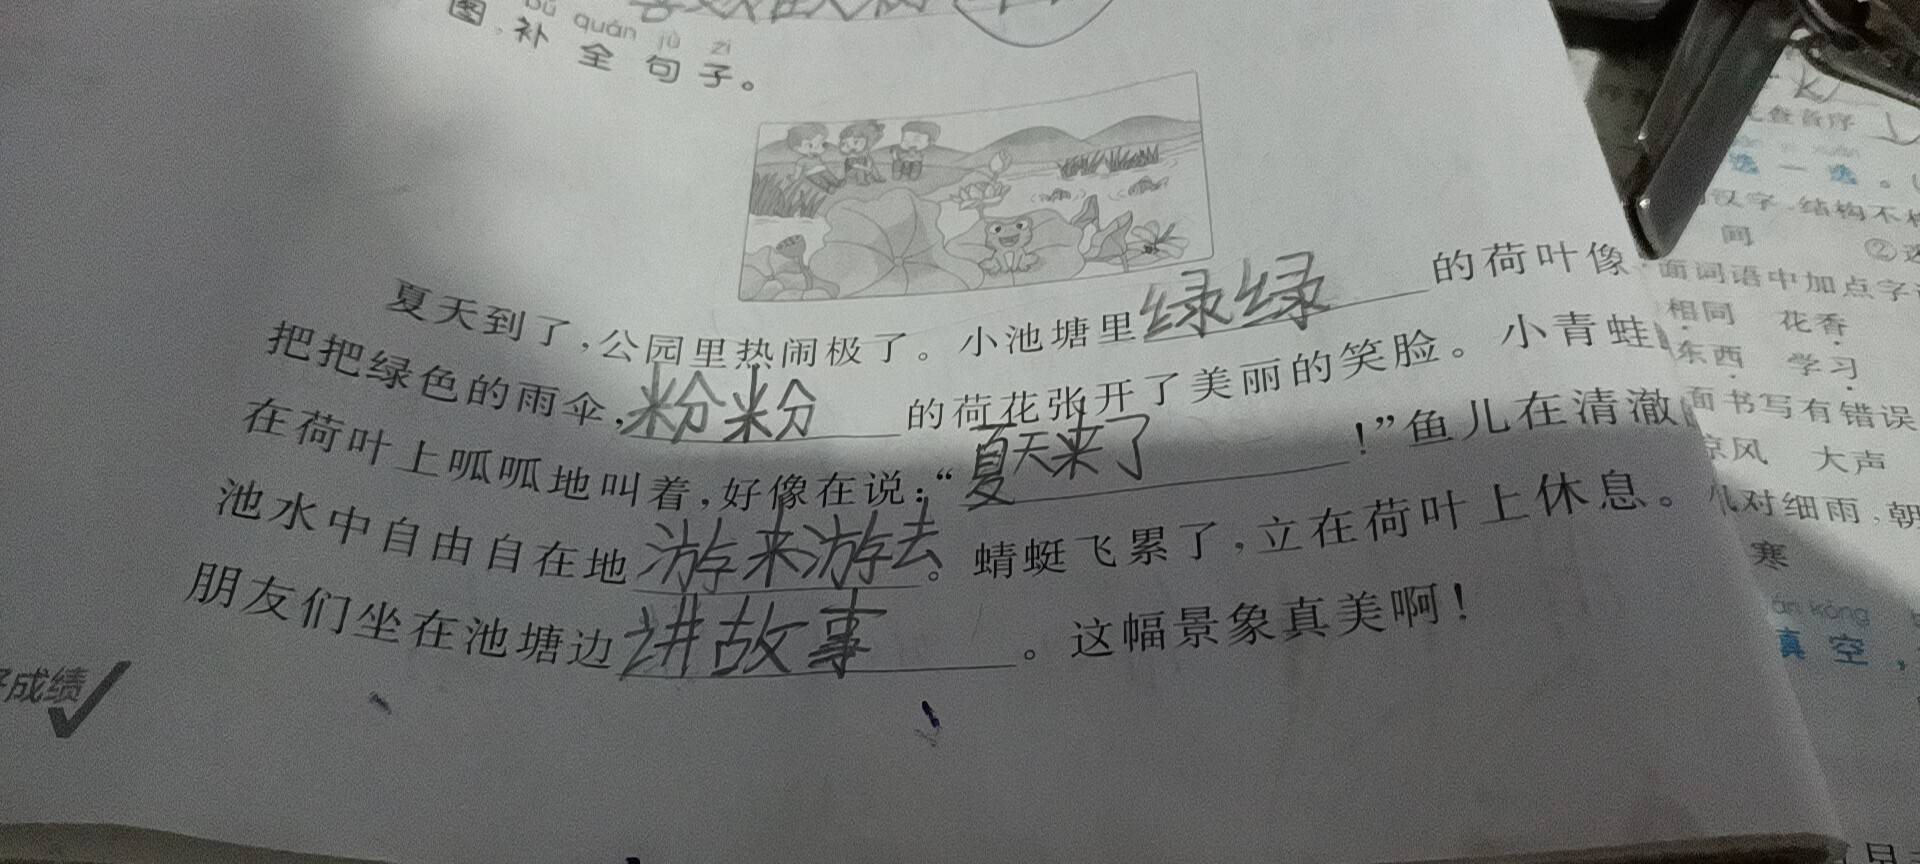 bǔ quán jù zi
图，补全句子。
夏天到了，公园里热闹极了。小池塘里绿绿的荷叶像
把把绿色的雨伞，粉粉的荷花张开了美丽的笑脸。小青蛙
在荷叶上呱呱地叫着，好像在说：“夏天来了！”鱼儿在清澈
池水中自由自在地游来游去。蜻蜓飞累了，立在荷叶上休息。
朋友们坐在池塘边讲故事。这幅景象真美啊！
成绩
查音序
选一选。
汉字，结构不
间 ②
面词语中加点字
相同 花香
东西 学习
面书写有错误
凉风 大声
儿对细雨，朝
寒
kòng
真空，